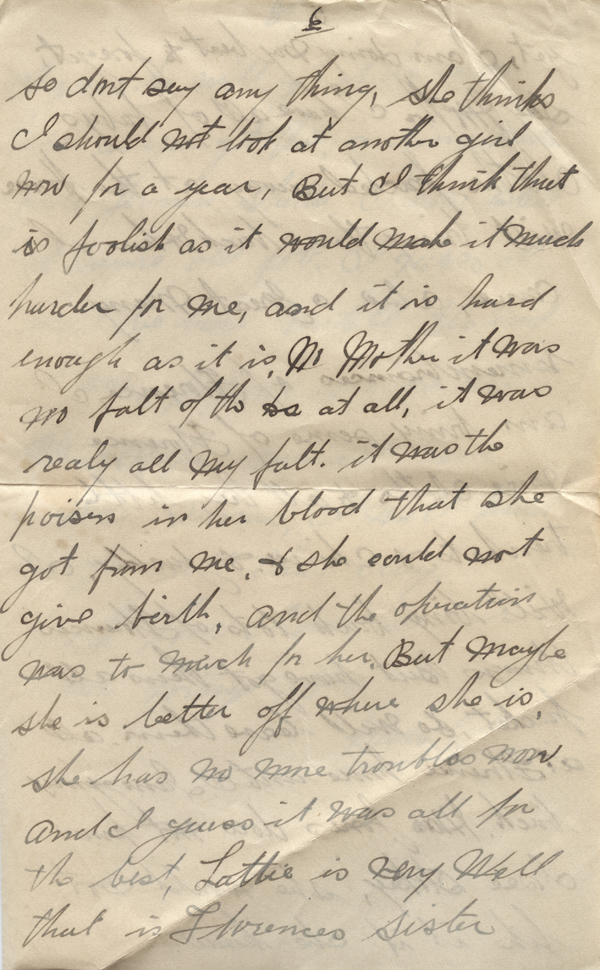 6
so dont say any thing, she thinks
I should not look at another girl
now for a year, But I think that
is foolish as it would make it much
harder for me, and it is hard
enough as it is, No Mother it was
no falt of the at all, it was
realy all my falt. it was the
poisen in her blood that she
got from me, & she could not
give birth, and the operation
was to much for her. But maybe
she is better off where she is,
she has no more troubles now
and I guess it was all for
the best, Lottie is very Well
that is Florences sister